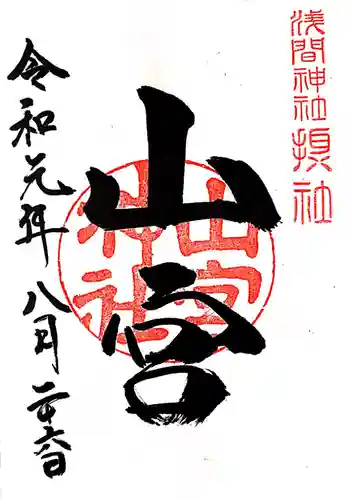 浅間神社摂社
山宮
山宮神社
令和元年八月二十六日